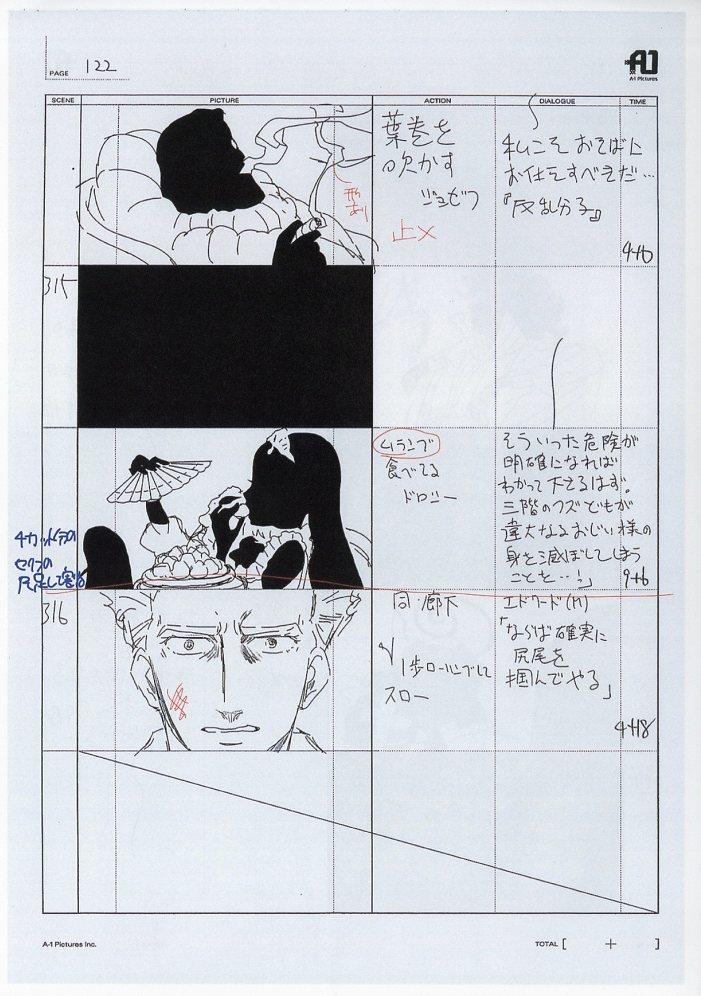 PAGE 122
A-1 Pictures
SCENE PICTURE ACTION DIALOGUE TIME
葉巻を
吹かす
ジョゼフ
止メ
影
あり
私こそ おそばに
お仕えすべきだ…
『反乱分子』
4+6
315
ムランプ
食べてる
ドロシー
そういった危険が
明確になれば
わかって下さるはず。
三階のクズどもが
偉大なるおじい様の
身を滅ぼしてしまう
ことを…!」
9+6
4カット分の
セリフの
尺足して割る
316
同・廊下
1歩ローリングして
スロー
エドワード(M)
「ならば確実に
尻尾を
掴んでやる」
4+18
A-1 Pictures Inc.
TOTAL [ + ]